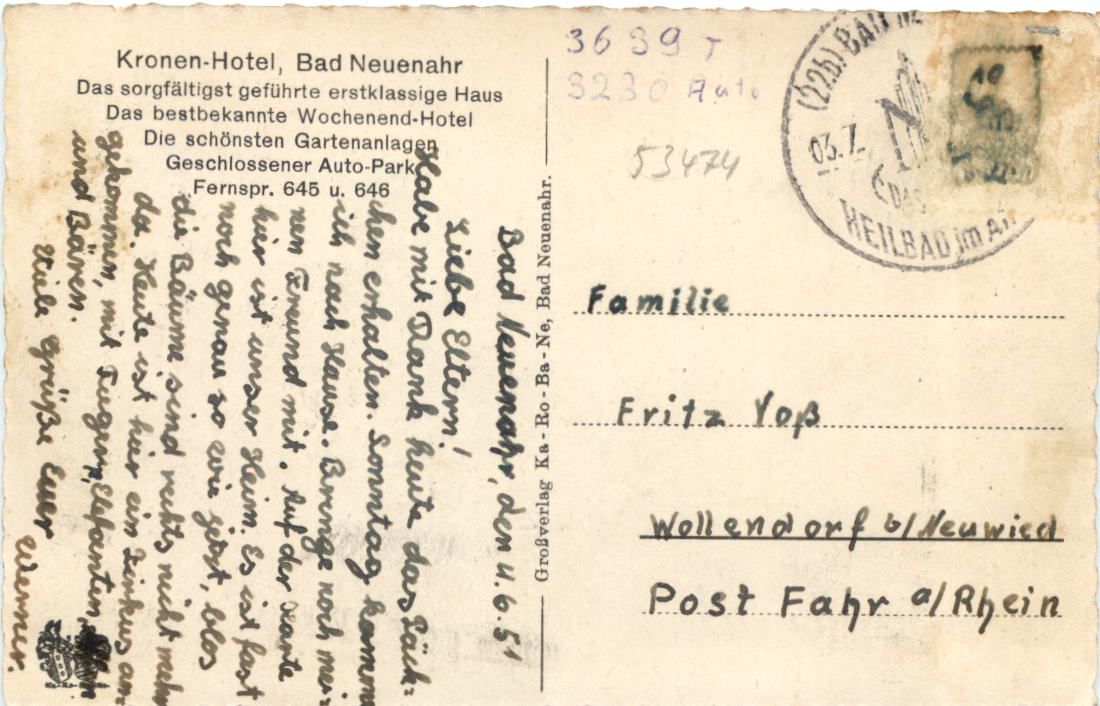 Kronen-Hotel, Bad Neuenahr
Das sorgfältigst geführte erstklassige Haus
Das bestbekannte Wochenend-Hotel
Die schönsten Gartenanlagen
Geschlossener Auto-Park
Fernspr. 645 u. 646
Bad Neuenahr, den 4.6.51
Liebe Eltern!
Habe mit Dank heute das Päck=
chen erhalten. Sonntag komme
ich nach Hause. Bringe noch mei=
nen Freund mit. Auf der Karte
hier ist unser Heim. Es ist fast
noch genau so wie jetzt, blos
die Bäume sind rechts nicht mehr
da. Heute ist hier ein Zirkus an=
gekommen, mit Tigern, Elefanten
und Bären.
Viele Grüße Euer
Werner.
Großverlag Ka-Ro-Ba-Ne, Bad Neuenahr.
3639 T
3230 Auto
53474
(22b) BAD NE
03.7.
DAS
HEILBAD im A
10
Familie
Fritz Voß
Wollendorf b/Neuwied
Post Fahr a/Rhein